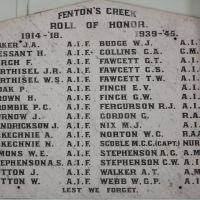 FENTON'S CREEK
ROLL OF HONOR.
1914-18. 1939-45.
A.I.F. BUDGE W.J. A.I.F.
ESSANT H. A.I.F. COLLINS C.A. C.M.F.
RCH F. A.I.F. FAWCETT G.T. A.I.F.
RTHISEL J.R. A.I.F. FAWCETT G.S. A.I.F.
RTHISEL W.S. A.I.F. FAWCETT T.W. A.I.F.
OAK P. A.I.F. FINCH E.V. C.M.F.
ROWN H. A.I.F. FINCH G.W. A.I.F.
ROMBIE P.C. A.I.F. FERGURSON R.J. A.I.F.
URNOW J. A.I.F. GORDON G. R.A.
NDRICKSON J. A.I.F. NIX M.J. A.I.F.
KECHNIE A. A.I.F. NORTON W.C. R.A.A.
KECHNIE N. A.I.F. SCOBLE M.C.C. (CAPT.) NUR
MONS W.E. A.I.F. STEPHENSON A.C. A.I.F.
EPHENSON A.S. A.I.F. STEPHENSON C.W. A.I.F.
TTON J. A.I.F. WALKER A.T. A.M.
TTON W. A.I.F. WEBB W.G.P. A.I.F.
LEST WE FORGET.